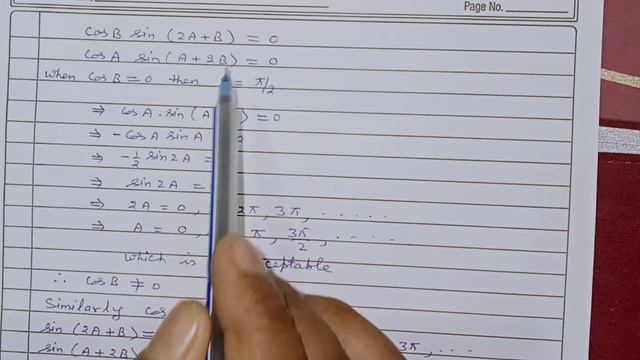 Page No.
cos B sin (2A+B) = 0
cos A sin (A+2B) = 0
when cos B = 0 then = π/2
⇒ cos A . sin (A ) = 0
⇒ - cos A sin A
⇒ - 1/2 sin 2A =
⇒ sin 2A =
⇒ 2A = 0, 2π, 3π, .....
⇒ A = 0, π, 3π/2, .....
which is ceptable
∴ cos B ≠ 0
Similarly cos
sin (2A+B) = 3π, ...
sin (A+2B)